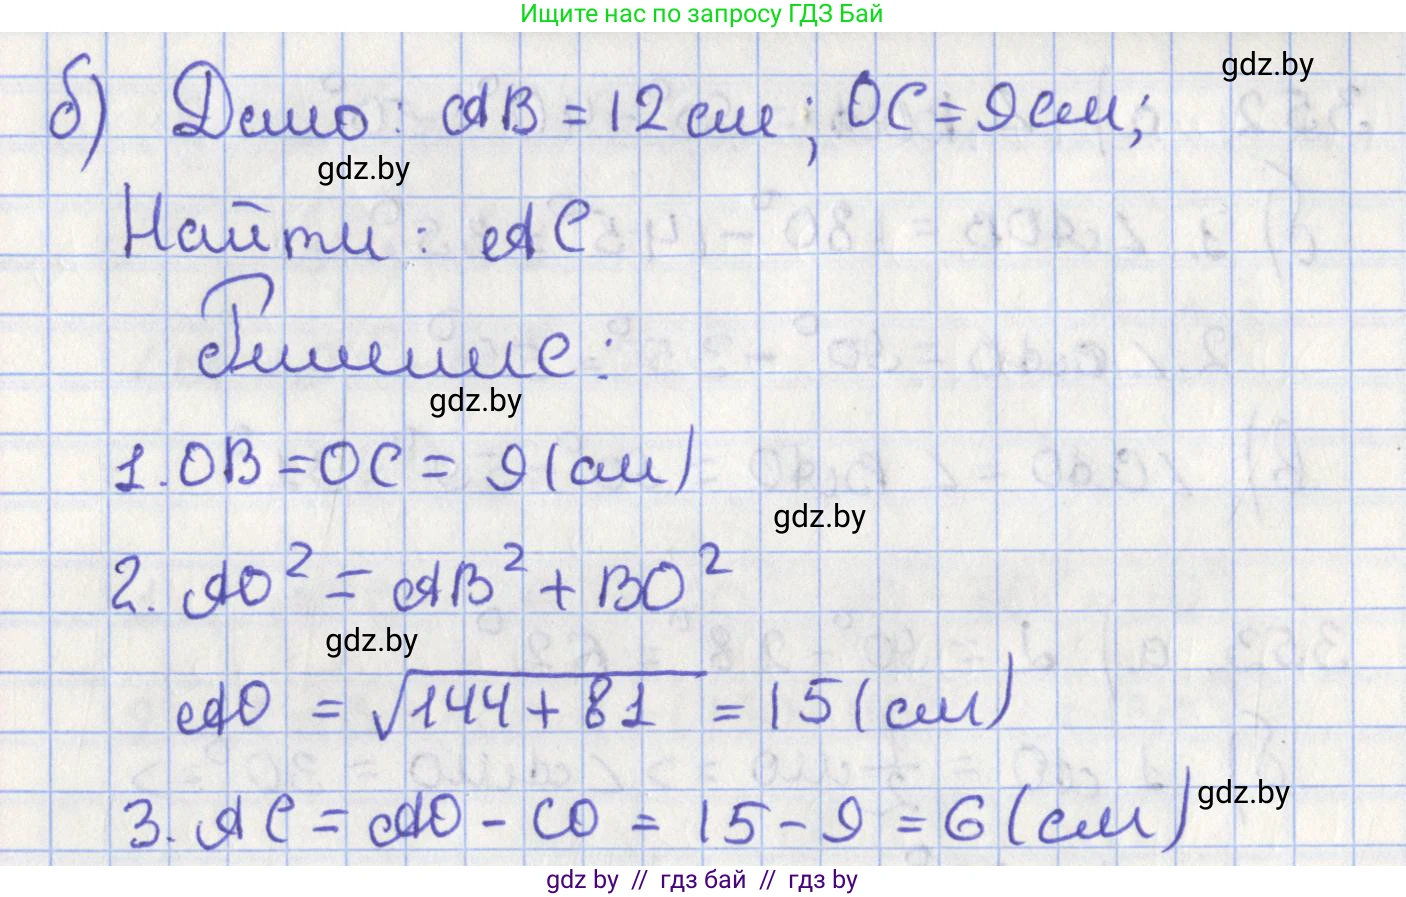 Ищите нас по запросу ГДЗ Бай
gdz.by
б) Дано: AB = 12 см; OC = 9 см;
gdz.by
Найти: AC
Решение:
gdz.by
1. OB = OC = 9 (см)
gdz.by
2. AO² = AB² + BO²
gdz.by
AO = √144 + 81 = 15 (см)
gdz.by
3. AC = AO - CO = 15 - 9 = 6 (см)
gdz by // гдз бай // гдз by